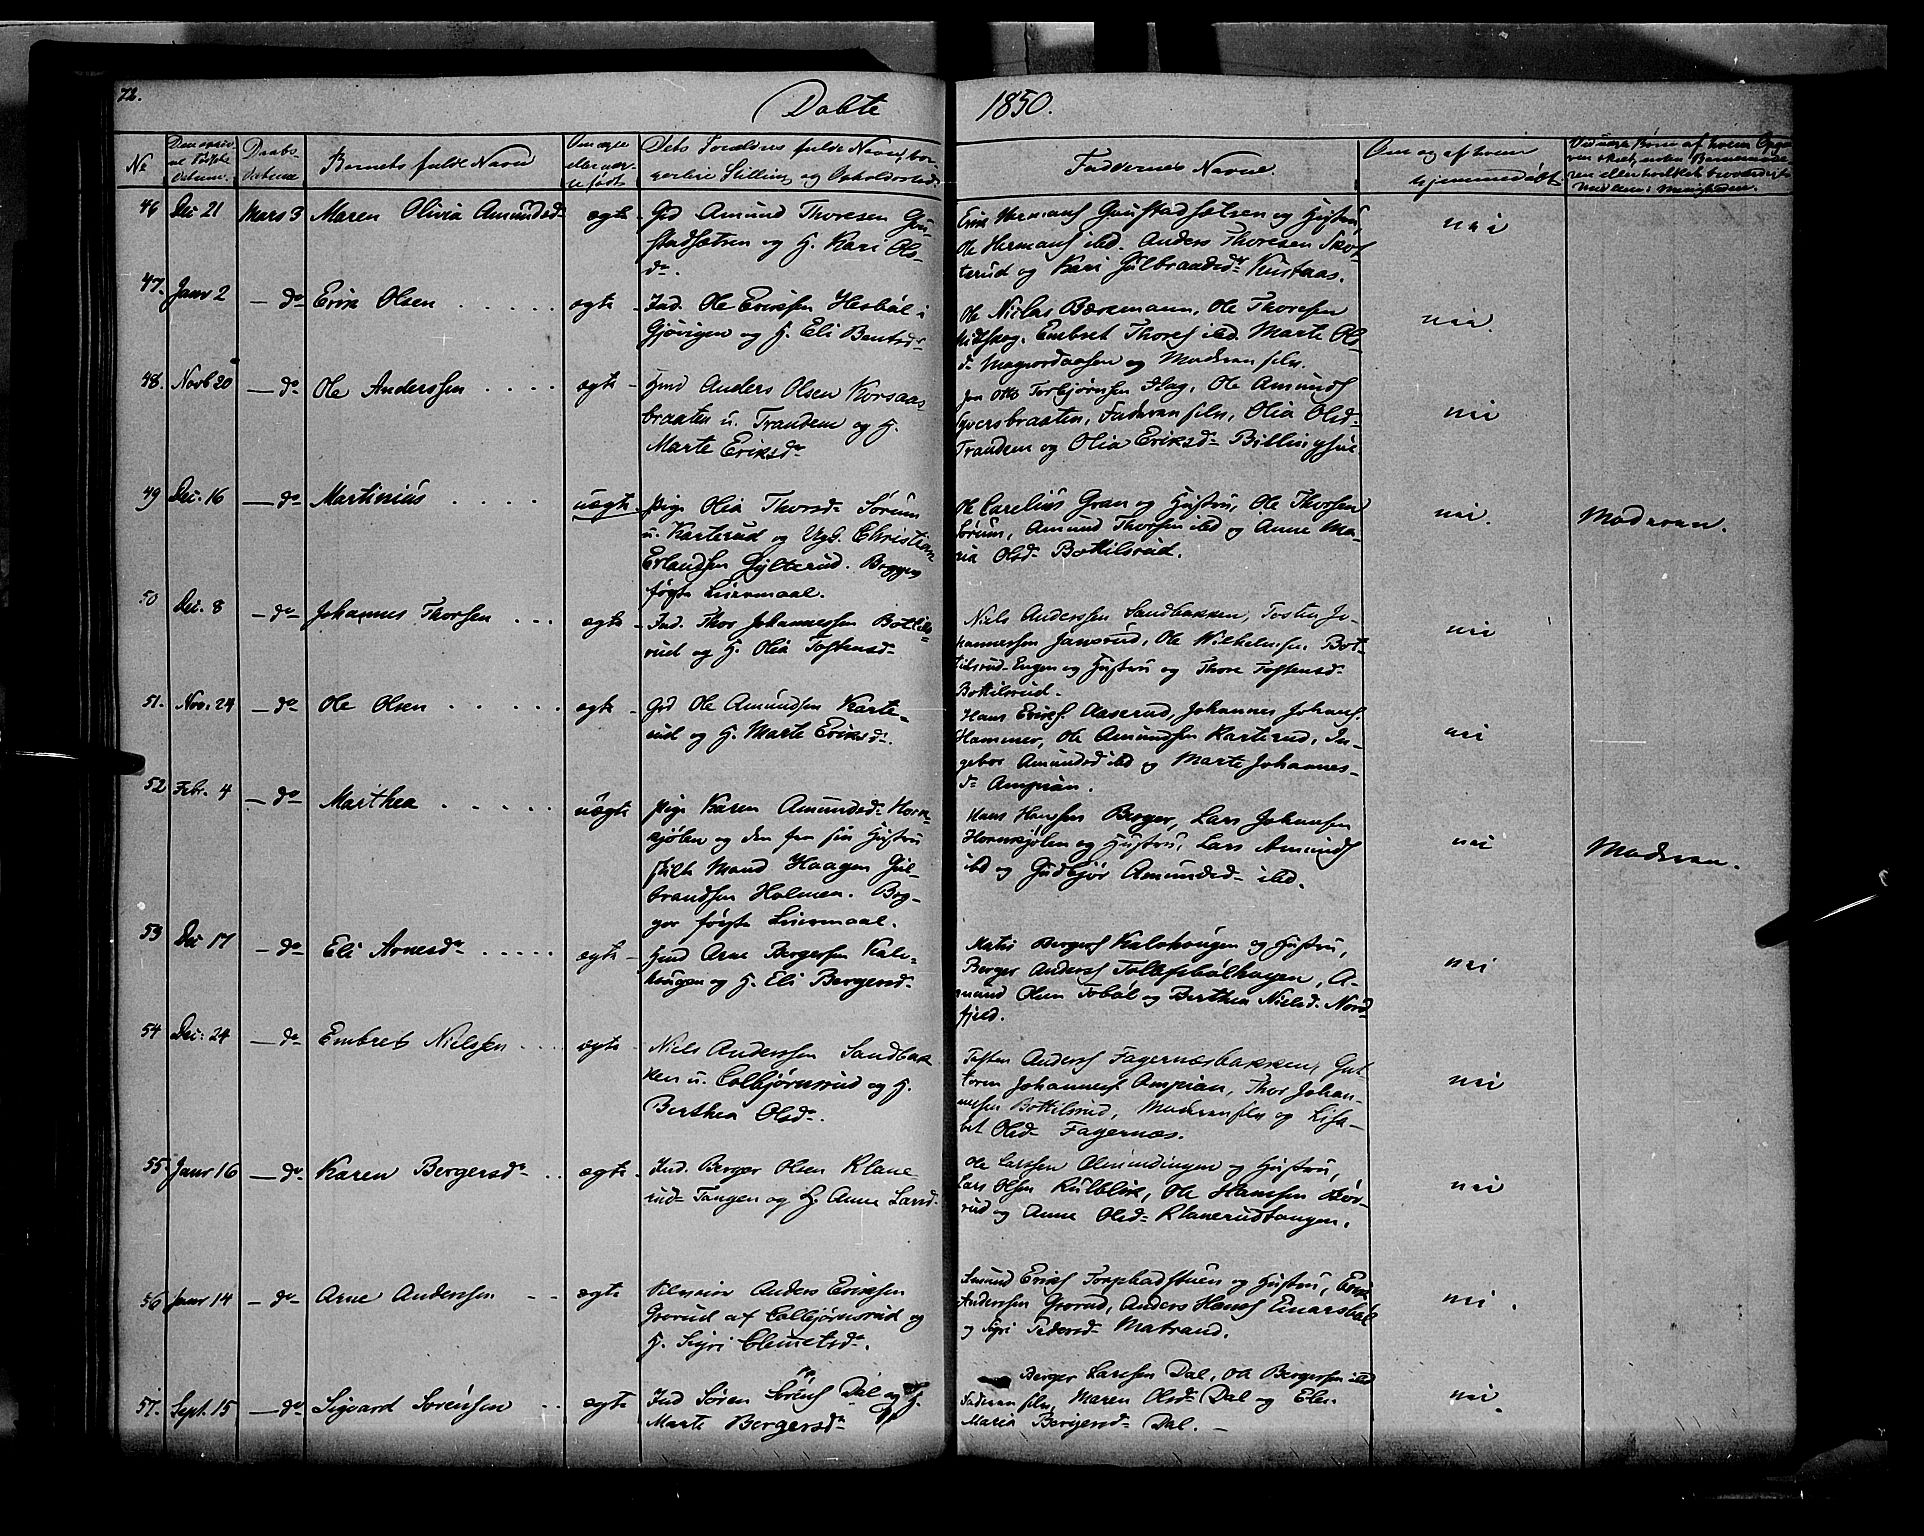 72.
Døbte 1850.
No
Daabs-
datum
Barnets fulde Navn
Faddernes Navne.
Om og af hvem
hjemmedøbt
46 Dec 21 Mars 3 Maren Olivia Amundsd. ægte Grd Amund Thoresen Gou-
stadsætren og H. Kari Ols-
dr.
Erik Hermans Goustadsætren og Hustru,
Ole Hermans ibd. Anders Thoresen
og Kari Gulbrandsdr
nei
47. Janr 2 — do Erik Olsen ægte Ind. Ole Eriksen Hesbøl i
Gjøvigen og H. Eli Bentsdr
Ole Niclas Bæremann, Ole Thoresen
Embret Thores ibd. Marte Ols-
dr Magnordaasen og Moderen selv.
nei.
48. Novb 20 — do Ole Anderssen ægte Hmd Anders Olsen Korsaas
braaten u. Trandem og H.
Marte Eriksdr
Torbjørnsen Hag, Ole Amunds
braaten, Faderen selv, Olia Olsd.
Trandem og Olia Eriksdr
nei
49 Dec. 16 — do Martinius uægte Pige Olia Thorsdr Sørum
u. Karterud og Ugk. Christian
Erlandsen Gylterud. Begges
første Leiermaal.
Ole Carelius Gran og Hustru, Ole Thorsen
Sørum, Amund Thorsen ibd og Anne Ma-
ria Olsdr Bottilsrud.
nei. Moderen.
50 Dec. 8 — do Johannes Thorsen ægte Ind. Thor Johannessen Bottils-
rud og H. Olia Tostensdr
Niels Anderssen Sandbakken, Tosten Jo-
hannessen Jansrud, Ole Wilhelmsen Bot-
tilsrud-Engen og Hustru og Thore Tostensdr
Bottilsrud.
nei
51. Nov. 24 — do Ole Olsen ægte Grd Ole Amundsen Karte-
rud og H. Marte Eriksdr.
Hans Eriks. Aaserud, Johannes Johans.
Hammer, Ole Amundsen Karterud, In-
gebor Amundsd ibd og Marte Johannes-
dr Ampian.
nei
52 Febr. 4 — do Marthea uægte Pige Karen Amundsdr Horn-
kjølen og den fra sin Hustru
skilte Mand Haagen Gul-
brandsen Holmen. Beg-
ges første Leiermaal.
Hans Hanssen Berger, Lars Johansen
Hornkjølen og Hustru, Lars Amunds
ibd og Gudbjør Amundsdr ibd.
nei Moderen.
53 Dec 17 — do Eli Arnesdr ægte Hmd Arne Bergersen Kals-
hougen og H. Eli Bergersdr
Mats Bergers Kalshougen og Hustru,
Berger Anders Tolfsbølhagen, A-
mund Olsen Tobøl og Berthea Nielsdr Nord-
fjeld.
nei
54 Dec. 24 — do Embret Nielssen ægte Niels Anderssen Sandbak-
ken u. Colbjørnsrud og H.
Berthea Olsdr.
Tosten Anders Fagernæsbakken, Gut-
torm Johannes Ampian, Thor Johan-
nessen Bottilsrud, Moderen selv og Lisa-
bet Olsdr Fagernæs.
nei
55 Janr 16 — do Karen Bergersdr ægte Ind. Berger Olsen Klane-
rud-Tangen og H. Anne Larsd.
Ole Larssen Almindingen og Hustru,
Lars Olsen Kulblik, Ole Hansen
rud og Anne Olsdr Klanerudtangen.
nei
56 Janr 14 — do Arne Anderssen ægte Anders Eriksen
Grorud af Colbjørnsrud og
H. Sigri Clemetsdr.
Amund Eriks Torpbadstuen og Hustru, Erik
Anderssen Grorud, Anders Hans Einarsbøl
og Sigri Pedersdr Matrand.
nei.
57. Sept. 15 — do Sigvard Sørensen ægte Ind Søren Sørens Dal og H.
Marte Bergersdr
Berger Larssen Dal, Ole Bergersen ibd
Faderen selv, Maren Olsdr Dal og Elen
Maria Bergersdr Dal. —
nei.